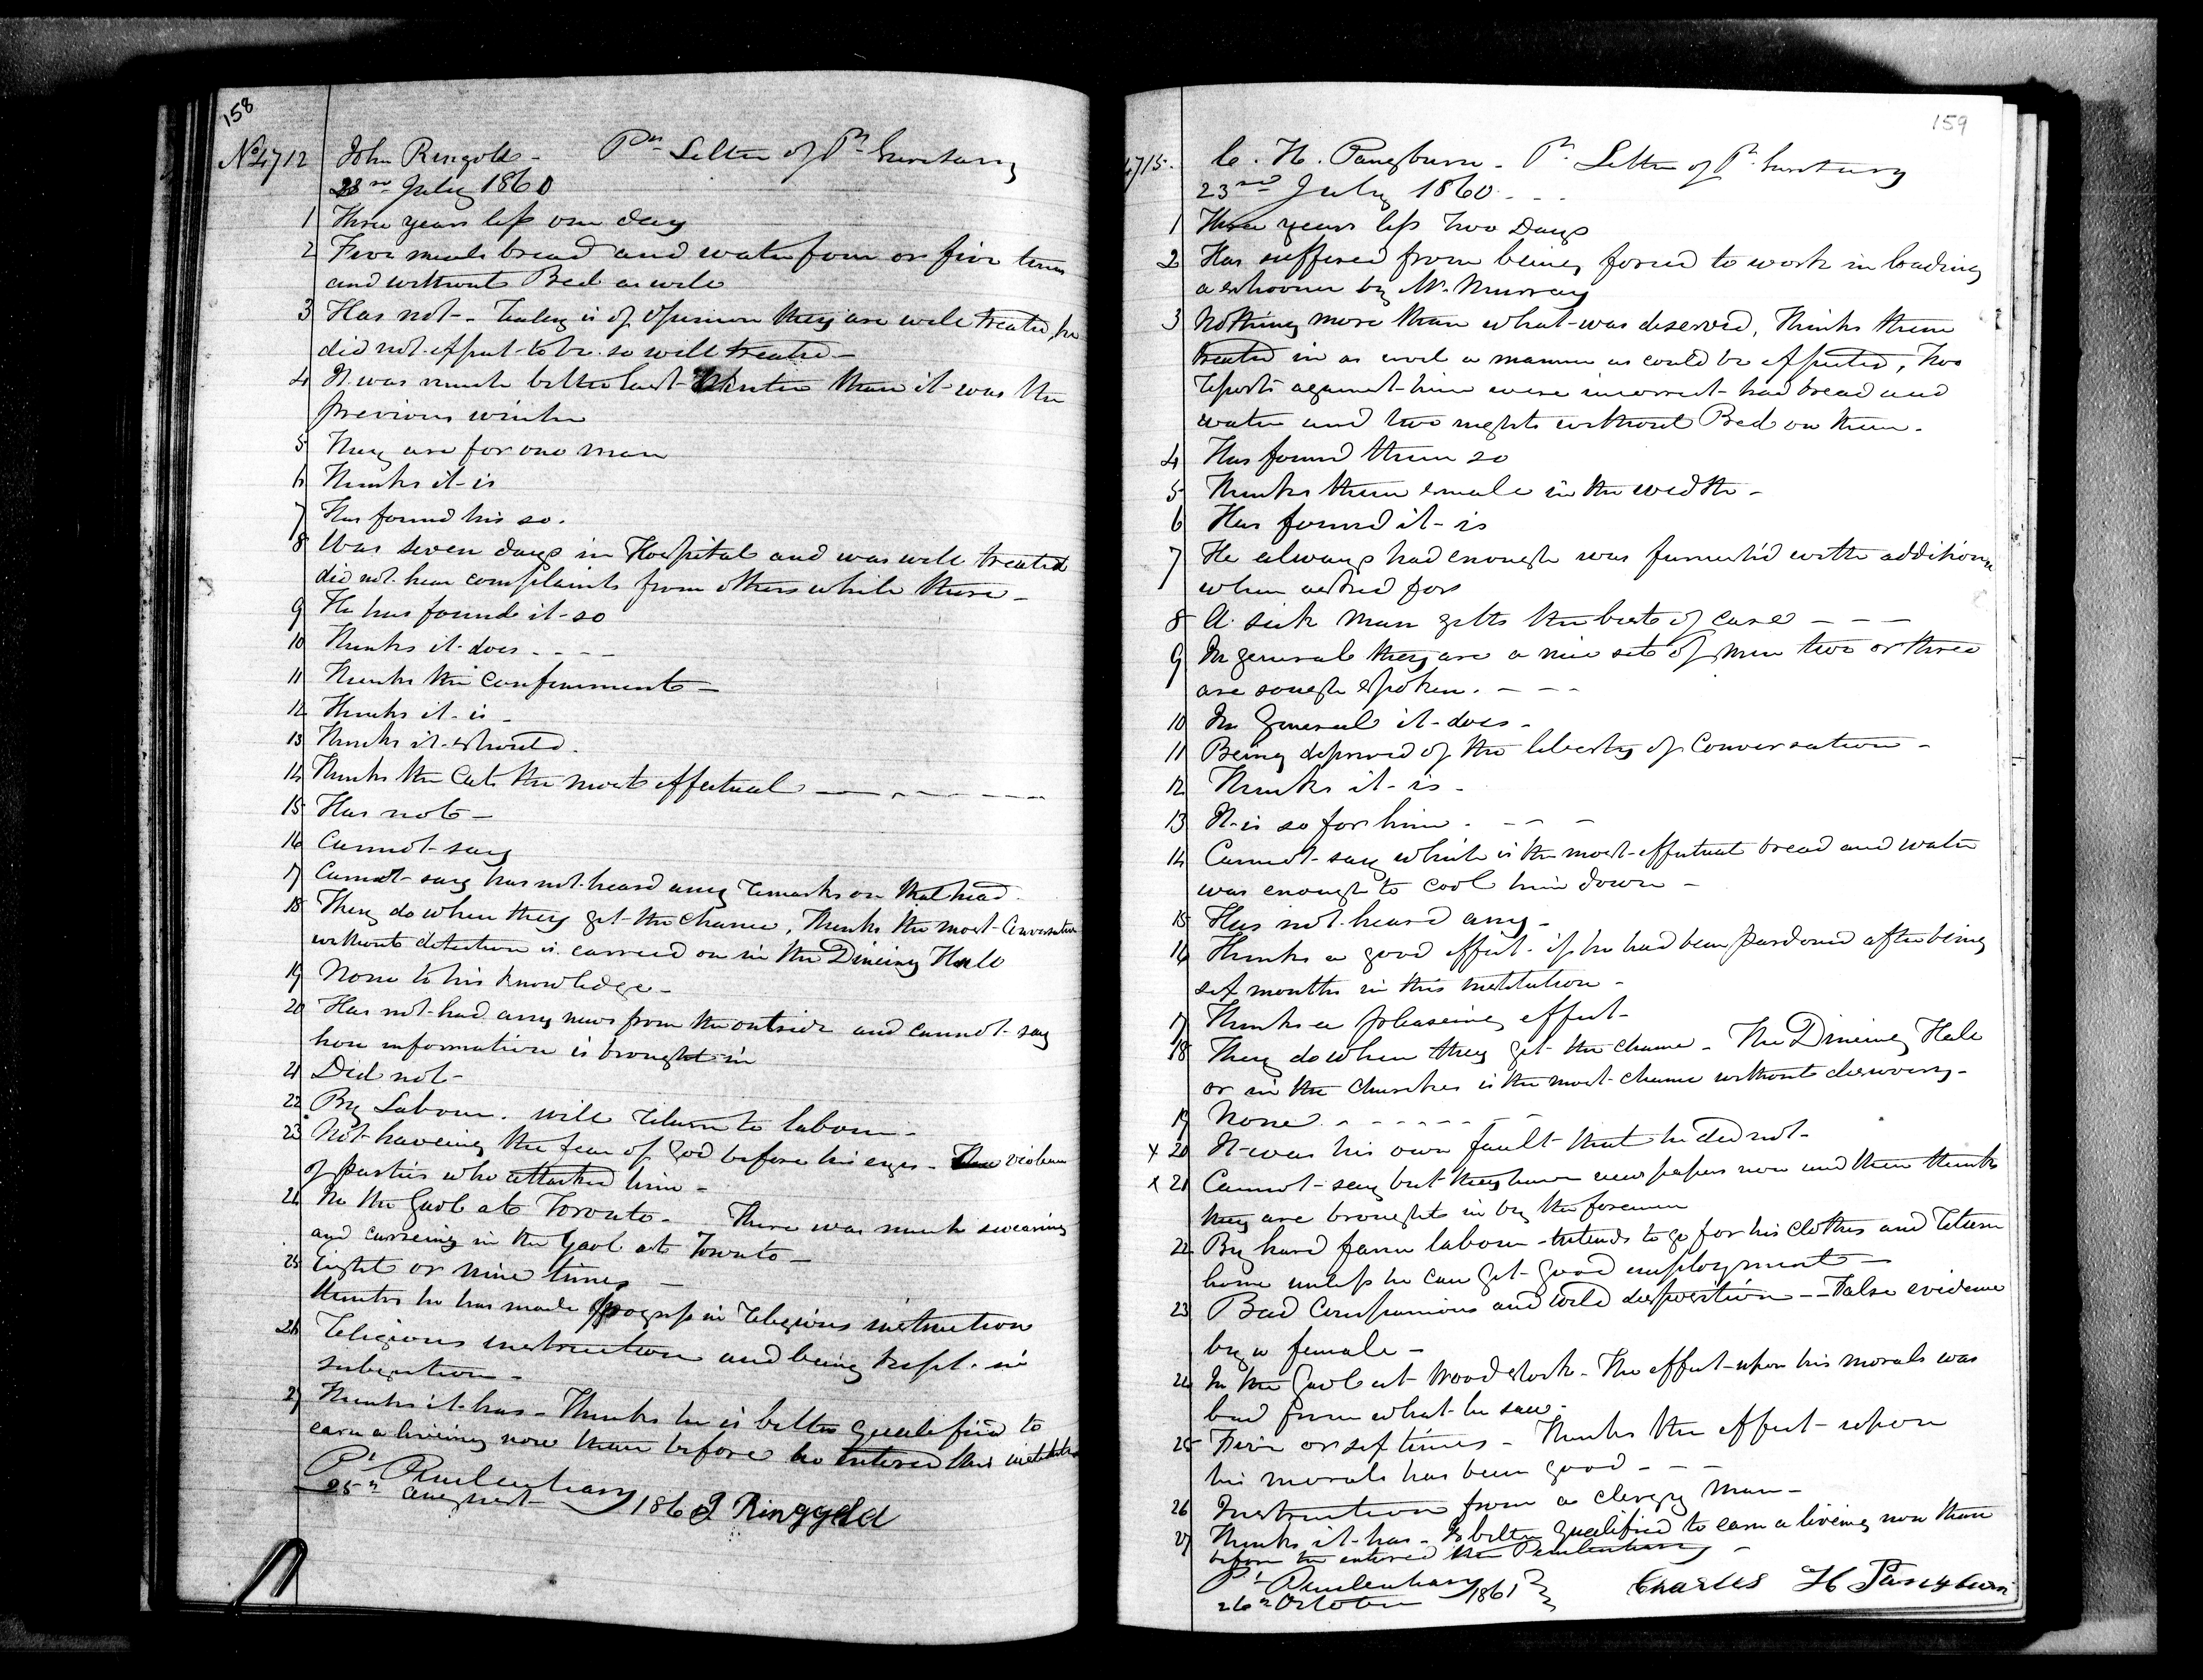 158
No 4712 John Ringold - Pr. Letter of Pl. Secretary
23rd July 1860
1 Three years less one day
2 Five meals bread and water four or five times
and without Bed as well
3 Has not - Today is of opinion they are well treated, he
did not expect to be so well treated -
4 It was much better last Winter than it was the
previous winter
5 They are for one man
6 Thinks it is
7 Has found his so.
8 Was seven days in Hospital and was well treated
did not hear complaints from others while there -
9 He has found it so
10 Thinks it does - - - -
11 Thinks the Confinement -
12 Thinks it is -
13 Thinks it should.
14 Thinks the Cats the most effectual - - - - - -
15 Has not -
16 Cannot say
17 Cannot say has not heard any remarks on that head.
18 They do when they get the chance, Thinks the most Conversation
without detection is carried on in the Dineing Hall
19 None to his knowledge -
20 Has not had any news from the outside and cannot say
how information is brought in
21 Did not -
22 By Labour. will return to labour -
23 Not haveing the fear of God before his eyes - The violence
of parties who attacked him -
24 In the Gaol at Toronto - There was much swearing
and curseing in the Gaol at Toronto -
25 Eight or nine times -
Thinks he has made progress in religious instruction
26 Religious instruction and being kept in
subjection -
27 Thinks it has - Thinks he is better qualified to
earn a liveing now than before he entered this institution
Pl. Penitentiary
25th August 1860 J Ringgold
159
4715. C. H. Pangburn - Pr. Letter of Pl. Secretary
23rd July 1860 - - -
1 Three years less two Days
2 Has suffered from being forced to work in loading
a schooner by Mr. Murray
3 Nothing more than what was deserved, Thinks them
treated in as well a manner as could be expected, Two
reports against him were incorrect had bread and
water and two nights without Bed on them.
4 Has found them so
5 Thinks them small in the width -
6 Has found it is
7 He always had enough was furnish'd with additional
when asked for
8 A sick man getts the best of care - - -
9 In general they are a nice set of men two or three
are rough spoken. - - -
10 In General it does -
11 Being deprived of the liberty of Conversation -
12 Thinks it is -
13 It is so for him. - - -
14 Cannot say which is the most effectual bread and water
was enough to cool him down -
15 Has not heard any -
16 Thinks a good effect if he had been pardoned after being
six months in this institution -
17 Thinks a pleaseing effect -
18 They do when they get the chance - The Dineing Hall
or in the Churches is the most chance without discovery -
19 None - - - - - -
x 20 It was his own fault that he did not -
x 21 Cannot say but they have newspapers now and then thinks
they are brought in by the foremen
22 By hard farm labour - intends to go for his clothes and return
home unless he can get good employment -
23 Bad Companions and wild disposition -- False evidence
by a female -
24 In the Gaol at Woodstock - The effect upon his morals was
bad from what he saw -
25 Five or six times - Thinks the effect upon
his morals has been good - - -
26 Instruction from a clergy man -
27 Thinks it has - Is better qualified to earn a liveing now than
before he entered the Penitentiary -
Pl. Penitentiary
26th October 1861 Charles H Pangburn